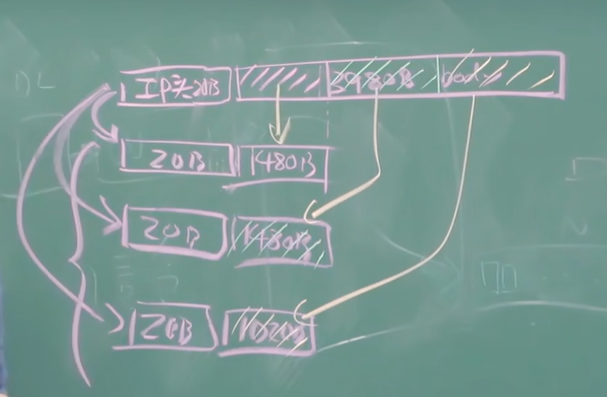 IP头20B 3980B
20B 1480B
20B 1480B
20B 1020B